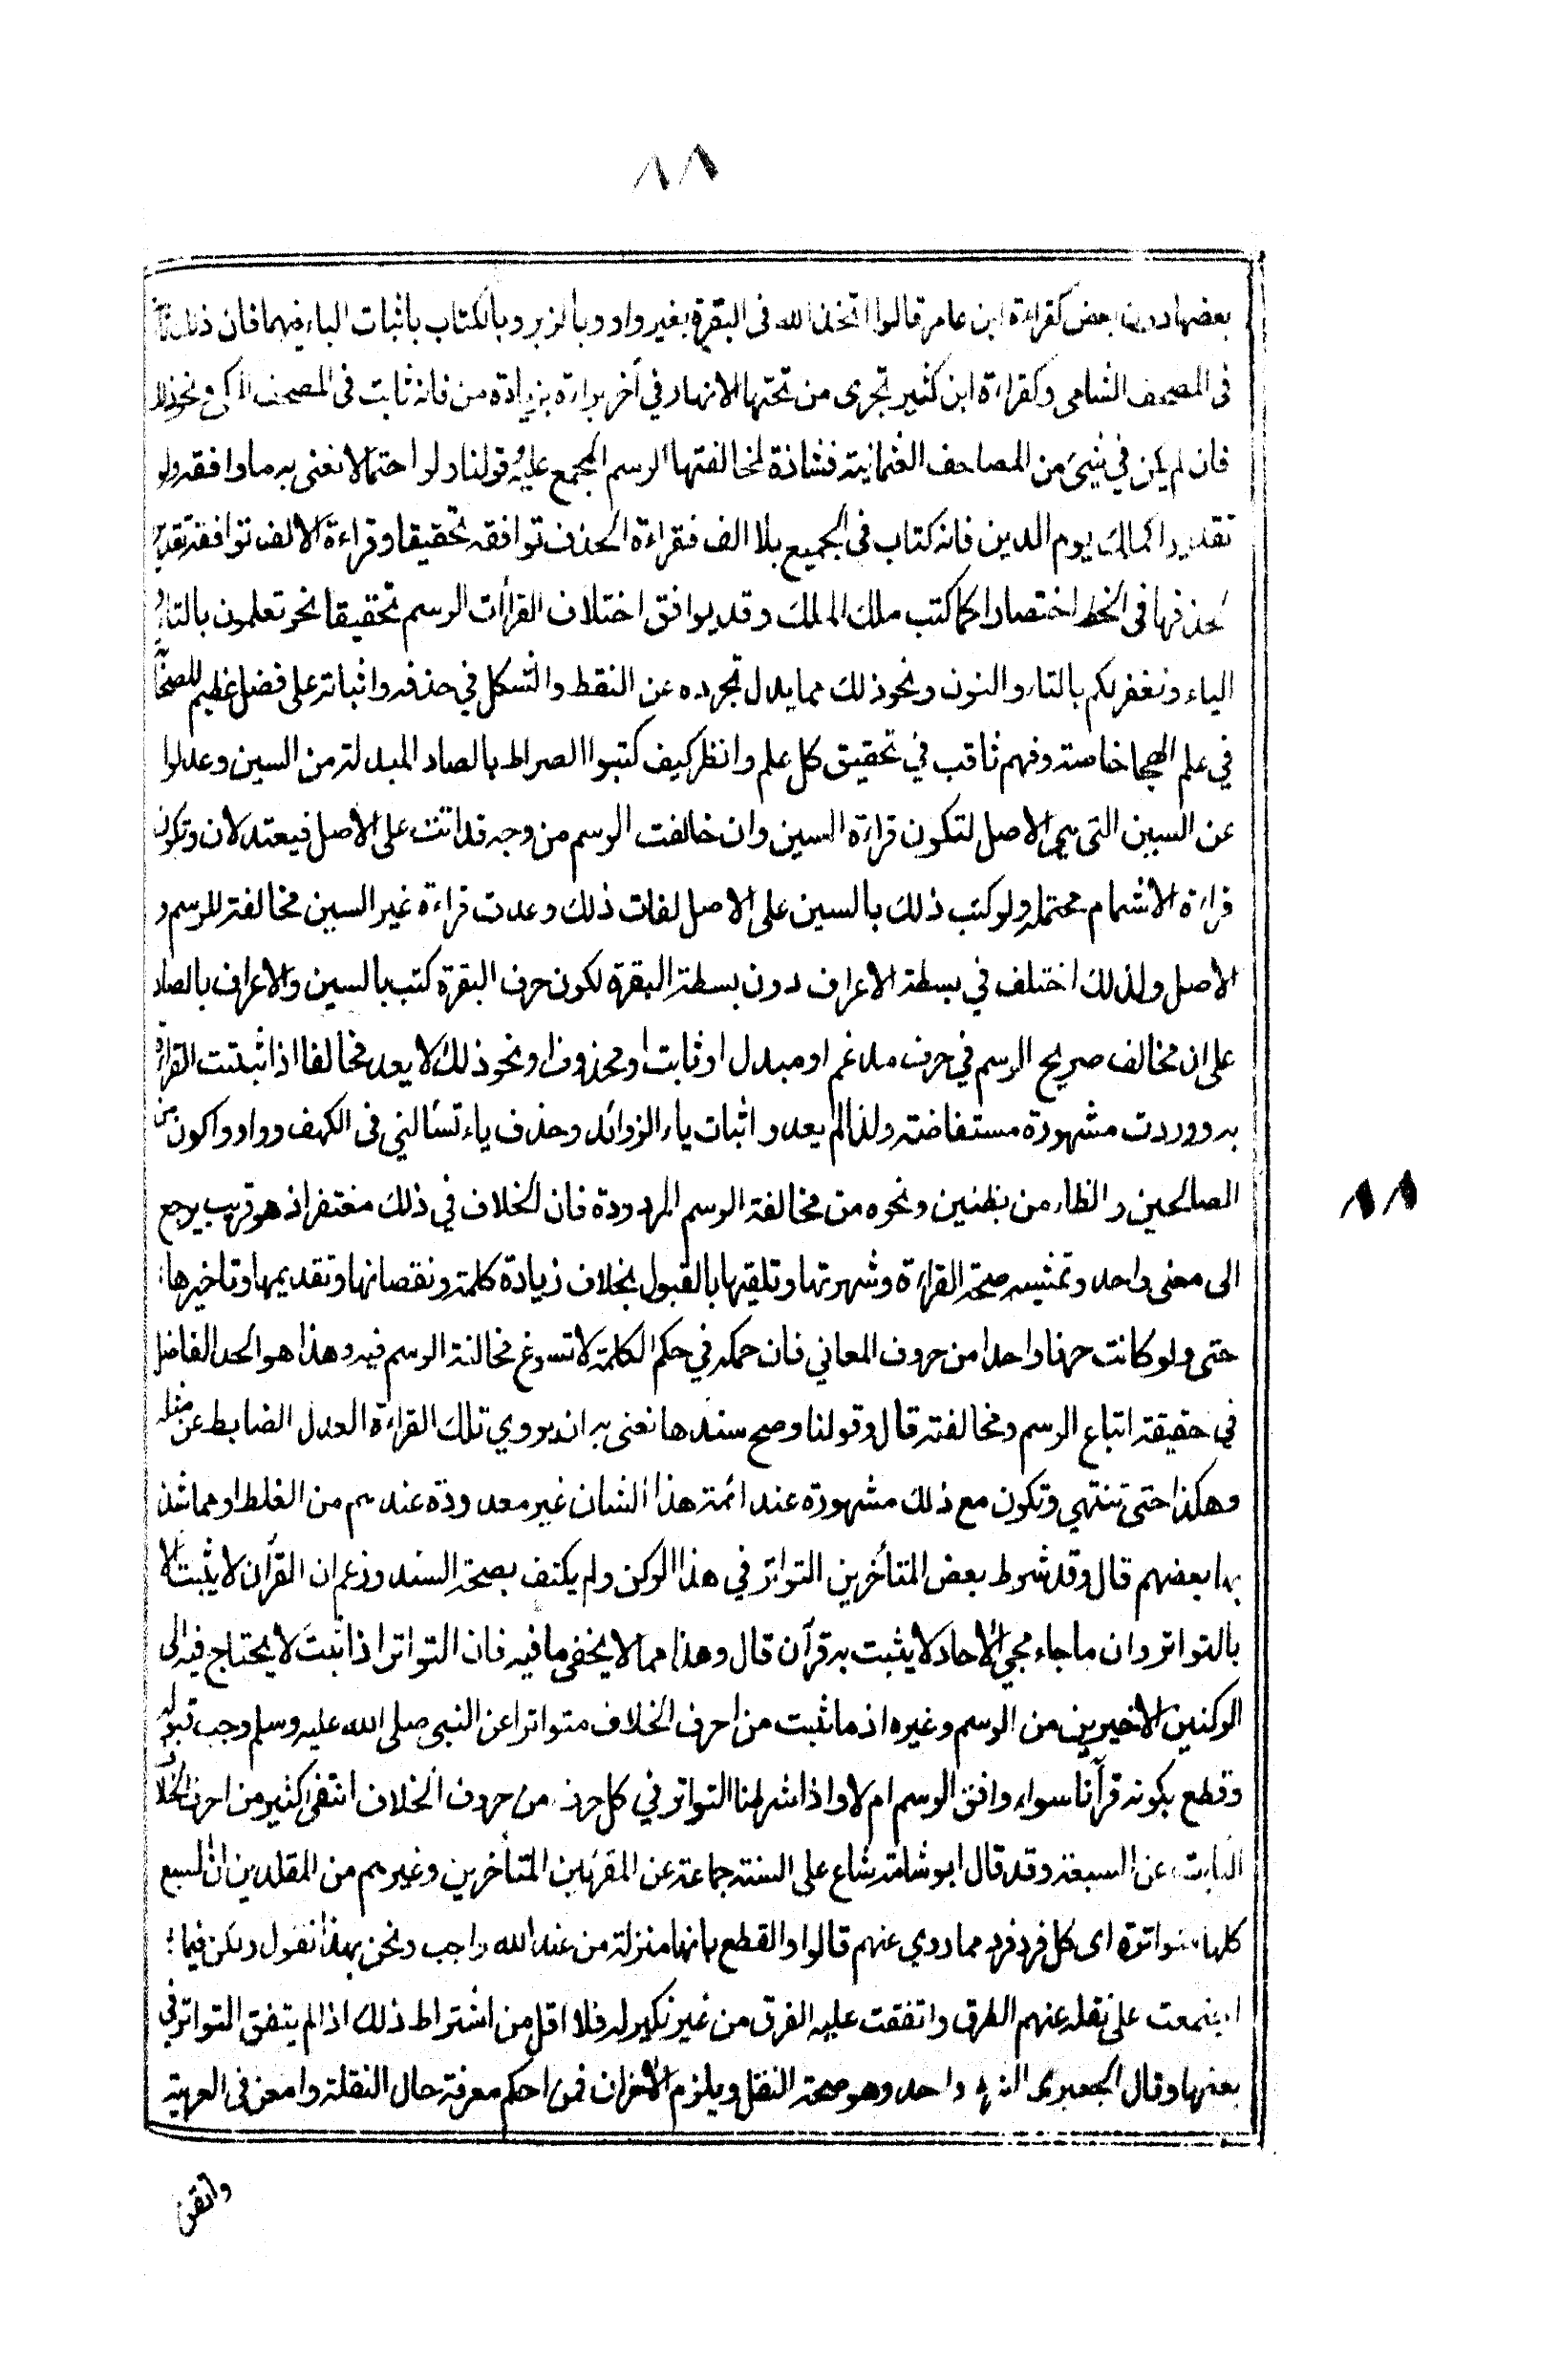 ٨٨
بعضها دون بعض كقراءة ابن عامر قالوا اتخذ الله فى البقرة بغير واو وبالزبر وبالكتاب باثبات الباء فيهما فان ذلك ثابت
فى المصحف الشامى وكقراءة ابن كثير تجرى من تحتها الانهار في آخر براءة بزيادة من فانه ثابت فى المصحف المكى ونحو ذلك
فان لم يكن في شيئ من المصاحف العثمانية فشاذة لمخالفتها الرسم المجمع عليه وقولنا ولو احتمالا نعنى به ما وافقه ولو
تقديرا كمالك يوم الدين فانه كتاب فى الجميع بلا الف فقراءة الحذف توافقه تحقيقا وقراءة الالف توافقه تقديرا
لحذفها فى الخط اختصارا كما كتب ملك الملك وقد يوافق اختلاف القراآت الرسم تحقيقا نحو تعلمون بالتاء و
الياء ونغفر لكم بالتاء والنون ونحو ذلك مما يدل تجرده عن النقط والشكل في حذفه واثباته على فضل عظيم للصحابة
في علم الهجا خاصة وفهم ثاقب في تحقيق كل علم وانظر كيف كتبوا الصراط بالصاد المبدلة من السين وعدلوا
عن السين التى هى الاصل لتكون قراءة السين وان خالفت الرسم من وجه قد اتت على الاصل فيعتدلان وتكون
قراءة الاشمام محتملة ولو كتب ذلك بالسين على الاصل لفات ذلك وعدت قراءة غير السين مخالفة للرسم و
الاصل ولذلك اختلف في بسطة الاعراف دون بسطة البقرة لكون حرف البقرة كتب بالسين والاعراف بالصاد
على ان مخالف صريح الرسم في حرف مدغم او مبدل او ثابت او محذوف او نحو ذلك لا يعد مخالفا اذا ثبتت القراءة
به ووردت مشهورة مستفاضة ولذا لم يعدوا اثبات ياء الزوائد وحذف ياء تسألني فى الكهف وواو واكون من
الصالحين والظاء من بظنين ونحوه من مخالفة الرسم المردودة فان الخلاف في ذلك مغتفر اذ هو قريب يرجع
الى معنى واحد وتمشيه صحة القراءة وشهرتها وتلقيها بالقبول بخلاف زيادة كلمة ونقصانها وتقديمها وتاخيرها
حتى ولو كانت حرفا واحدا من حروف المعاني فان حكمه في حكم الكلمة لا تسوغ مخالفة الرسم فيه وهذا هو الحد الفاصل
في حقيقة اتباع الرسم ومخالفته قال وقولنا وصح سندها نعنى به ان يروي تلك القراءة العدل الضابط عن مثله
وهكذا حتى تنتهي وتكون مع ذلك مشهورة عند ائمة هذا الشان غير معدودة عندهم من الغلط او مما شذ
بها بعضهم قال وقد شرط بعض المتأخرين التواتر في هذا الركن ولم يكتف بصحة السند وزعم ان القرآن لا يثبت الا
بالتواتر وان ما جاء مجي الآحاد لا يثبت به قرآن قال وهذا مما لا يخفى ما فيه فان التواتر اذا ثبت لا يحتاج فيه الى
الركنين الاخيرين من الرسم وغيره اذ ما ثبت من احرف الخلاف متواترا عن النبى صلى الله عليه وسلم وجب قبوله
وقطع بكونه قرآنا سواء وافق الرسم ام لا واذا شرطنا التواتر في كل حرف من حروف الخلاف انتفى كثير من احرف الخلاف
الثابت عن السبعة وقد قال ابو شامة شاع على السنة جماعة عن المقرئين المتأخرين وغيرهم من المقلدين ان السبع
كلها متواترة اى كل فرد فرد مما روي عنهم قالوا والقطع بانها منزلة من عند الله واجب ونحن بهذا نقول ولكن فيما
اجتمعت على نقله عنهم الطرق واتفقت عليه الفرق من غير نكير له فلا اقل من اشتراط ذلك اذا لم يتفق التواتر في
بعضها وقال الجعبرى الشرط واحد وهو صحة النقل ويلزم الآخران فمن احكم معرفة حال النقلة وامعن فى العربية
واتقن
٨٨